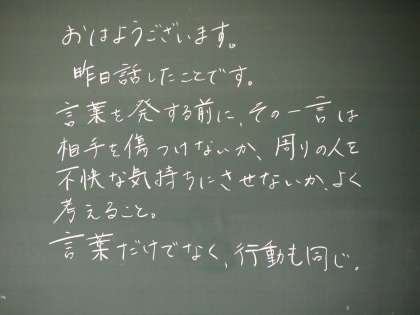 おはようございます。
昨日話したことです。
言葉を発する前に、その一言は
相手を傷つけないか、周りの人を
不快な気持ちにさせないか、よく
考えること。
言葉だけでなく、行動も同じ。